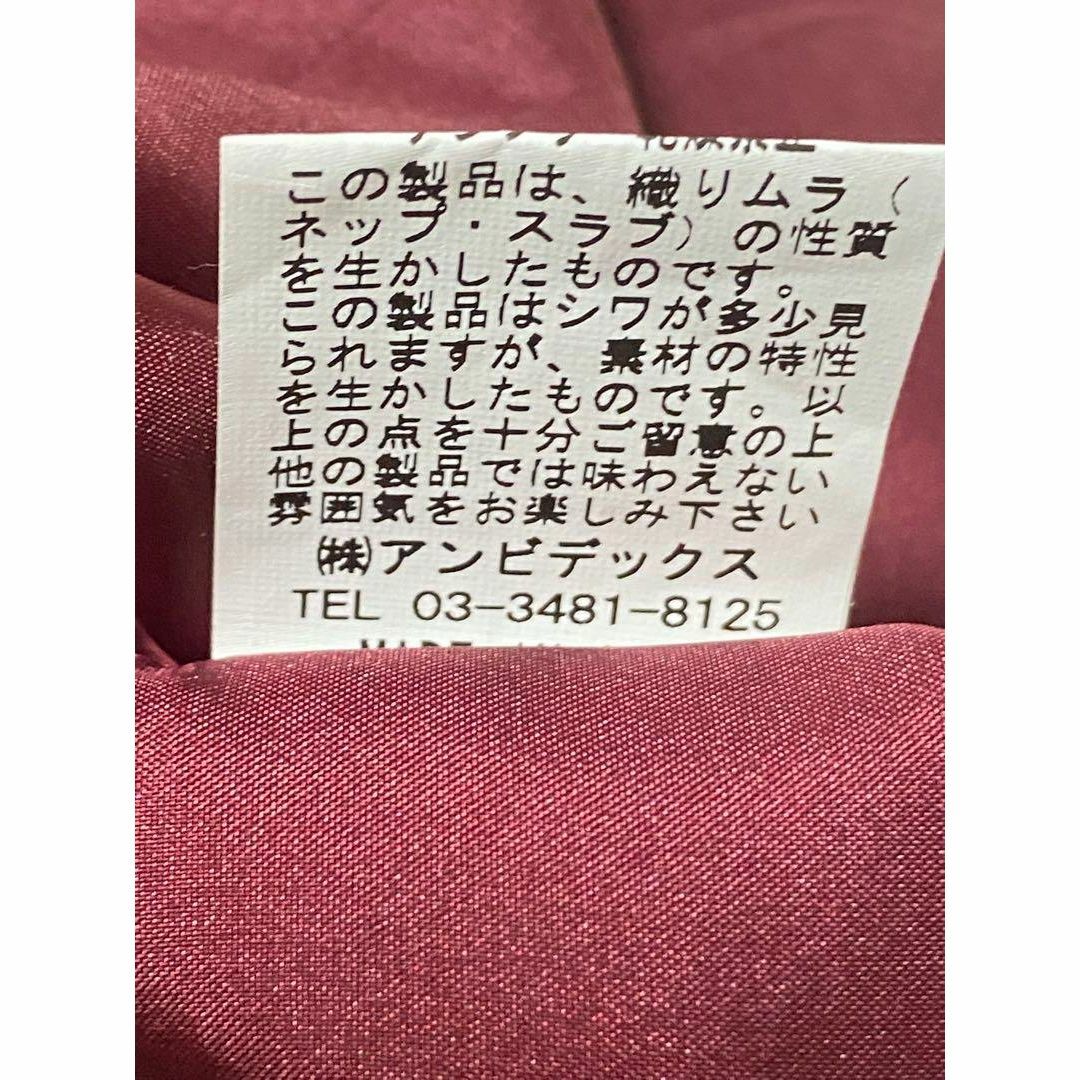 この製品は、織りムラ（
ネップ・スラブ）の性質
を生かしたものです。
この製品はシワが多少見
られますが、素材の特性
を生かしたものです。以
上の点を十分ご留意の上
他の製品では味わえない
雰囲気をお楽しみ下さい
㈱アンビデックス
TEL 03-3481-8125